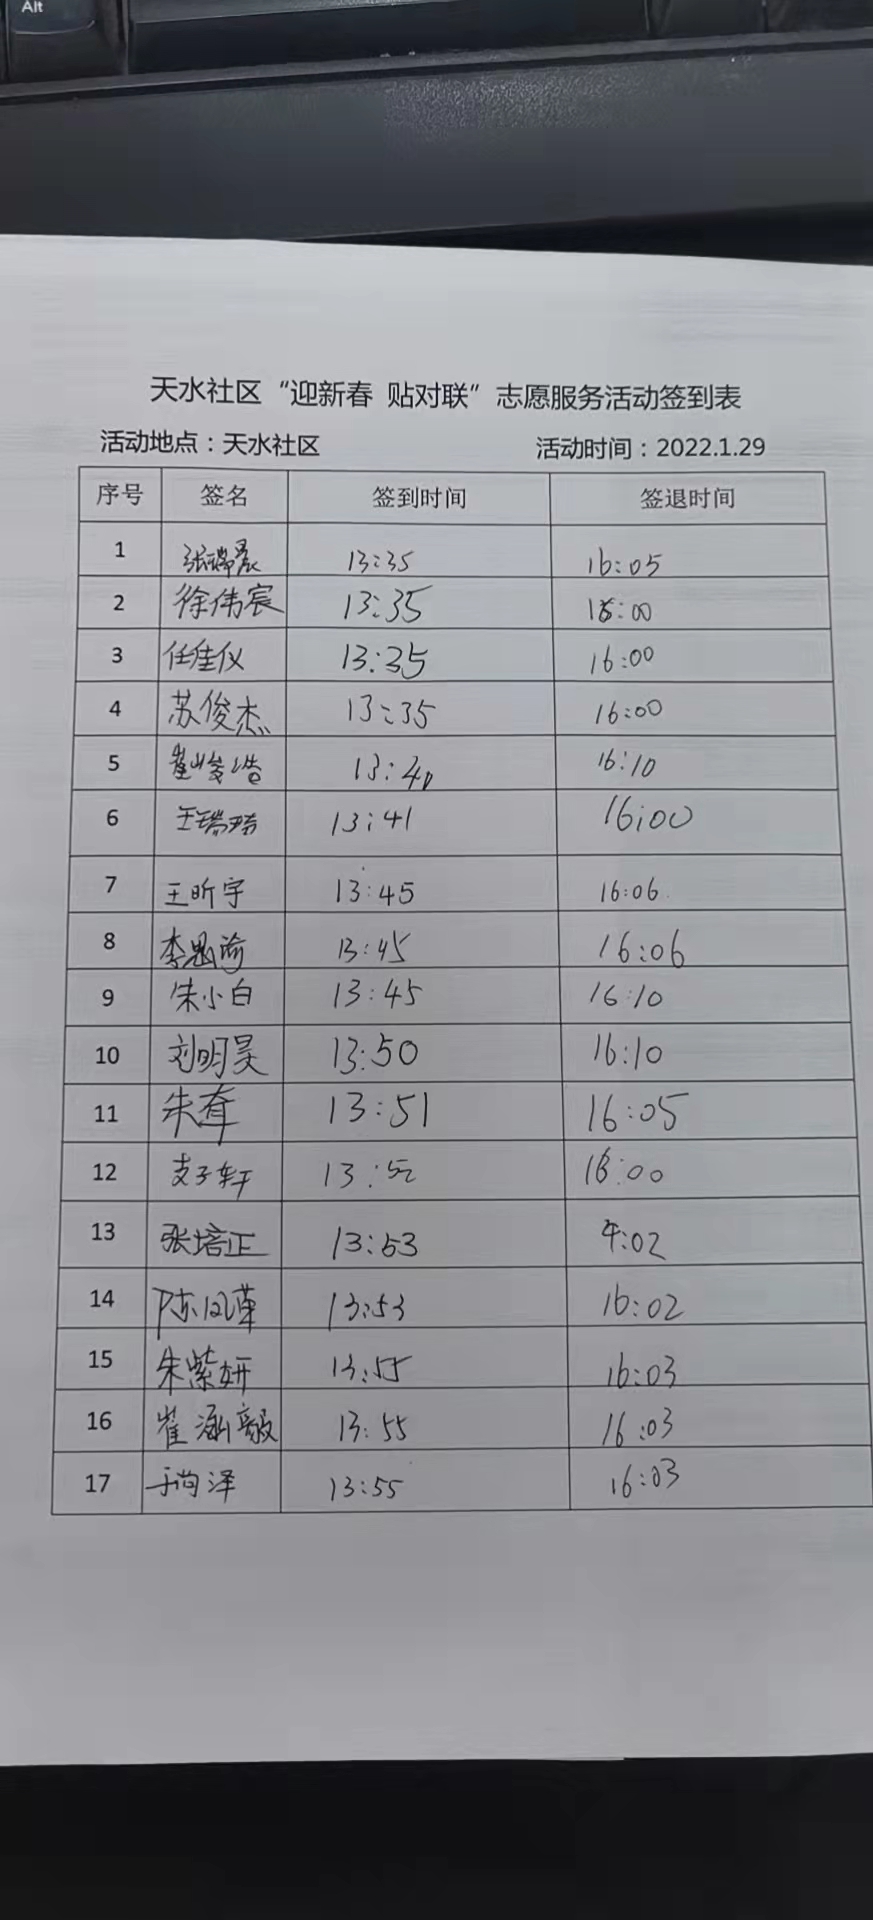 Alt
天水社区“迎新春 贴对联”志愿服务活动签到表
活动地点：天水社区 活动时间：2022.1.29
序号 签名 签到时间 签退时间
1 张瑞晨 13:35 16:05
2 徐伟宸 13:35 16:00
3 任佳仪 13:35 16:00
4 苏俊杰 13:35 16:00
5 崔峻浩 13:40 16:10
6 13:41 16:00
7 王昕宇 13:45 16:06
8 李思瑜 13:45 16:06
9 朱小白 13:45 16:10
10 刘明昊 13:50 16:10
11 13:51 16:05
12 支子轩 13:52 16:00
13 张培正 13:53 4:02
14 13:53 16:02
15 朱紫妍 13:55 16:03
16 崔涵毅 13:55 16:03
17 13:55 16:03